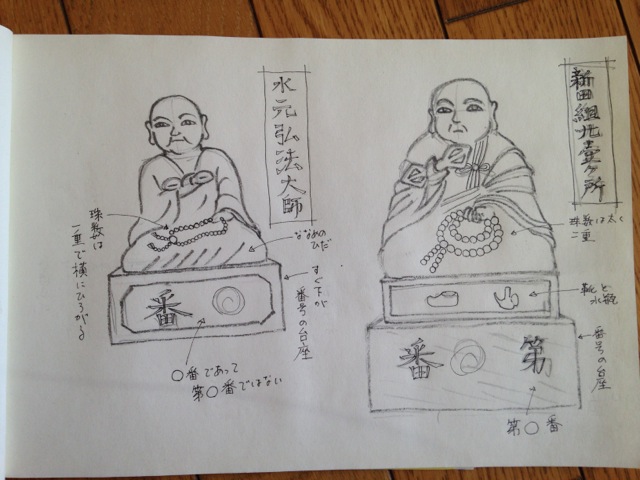 水元弘法大師
珠数は
一重で横にひろがる
ななめの
ひだ
すぐ下が
番号の台座
番
〇番であって
第〇番ではない
新田組
壹ヶ所
珠数は太く
二重
靴と
水瓶
番号の台座
第 番
第〇番